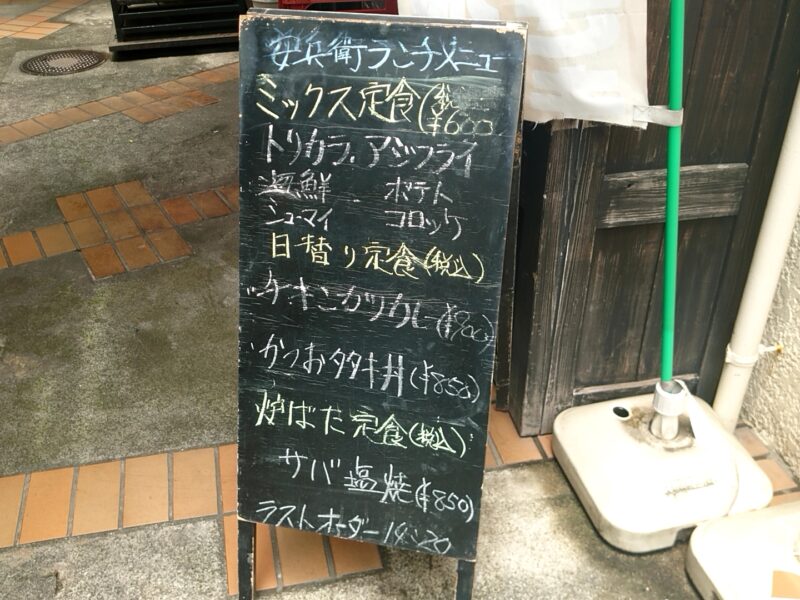 兵衛ランチメニュー
ミックス定食(税
¥600
トリカラ、アジフライ
海鮮 ポテト
シューマイ コロッケ
日替り定食(税込)
チキンカツカレー(¥900)
かつおタタキ丼(¥850)
炉ばた定食(税込)
サバ塩焼(¥850)
ラストオーダー14:20